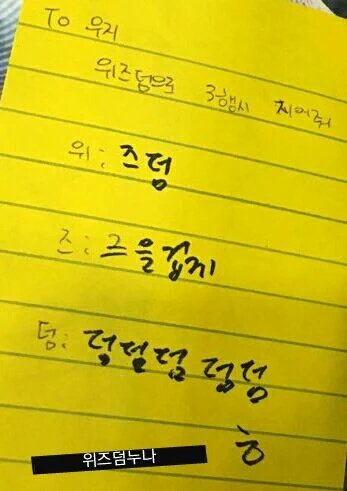 To 우지
위즈덤으로 3행시 지어줘
위: 즈덤
즈: 즈을겁게
덤: 덩덜덤 덩덩
ㅎ
위즈덤누나